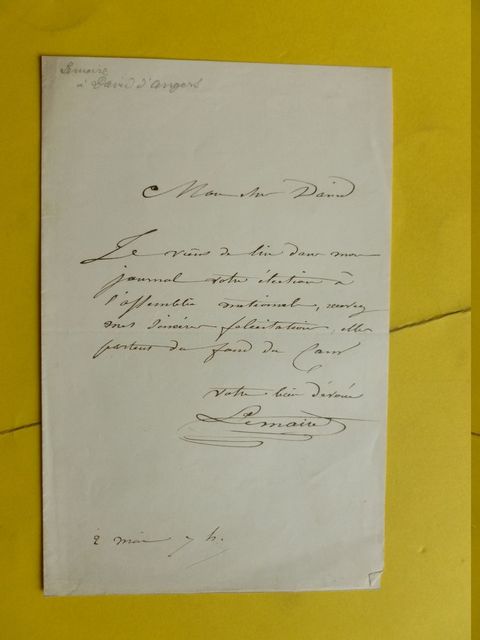 Lemaire
à David d'Angers
Mon cher David
Je viens de lire dans mon
journal votre élection à
l'assemblée national, recevez
mes sincère felicitation, elle
partent du fond du Cœur
votre bien dévoué
Lemaire
2 mai 7 h.